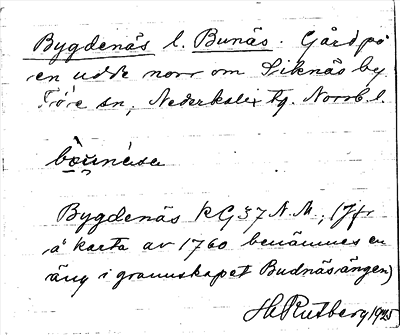 Bygdenäs l. Bunäs. Gård på
en udde norr om Siknäs by
Töre sn, Nederkalix tg. Norrb. l.
Bygdenäs KG 37 N.M.; (Jfr
å karta av 1760 benämnes en
äng i grannskapet Budnäsängen)
H. Rutberg 1925